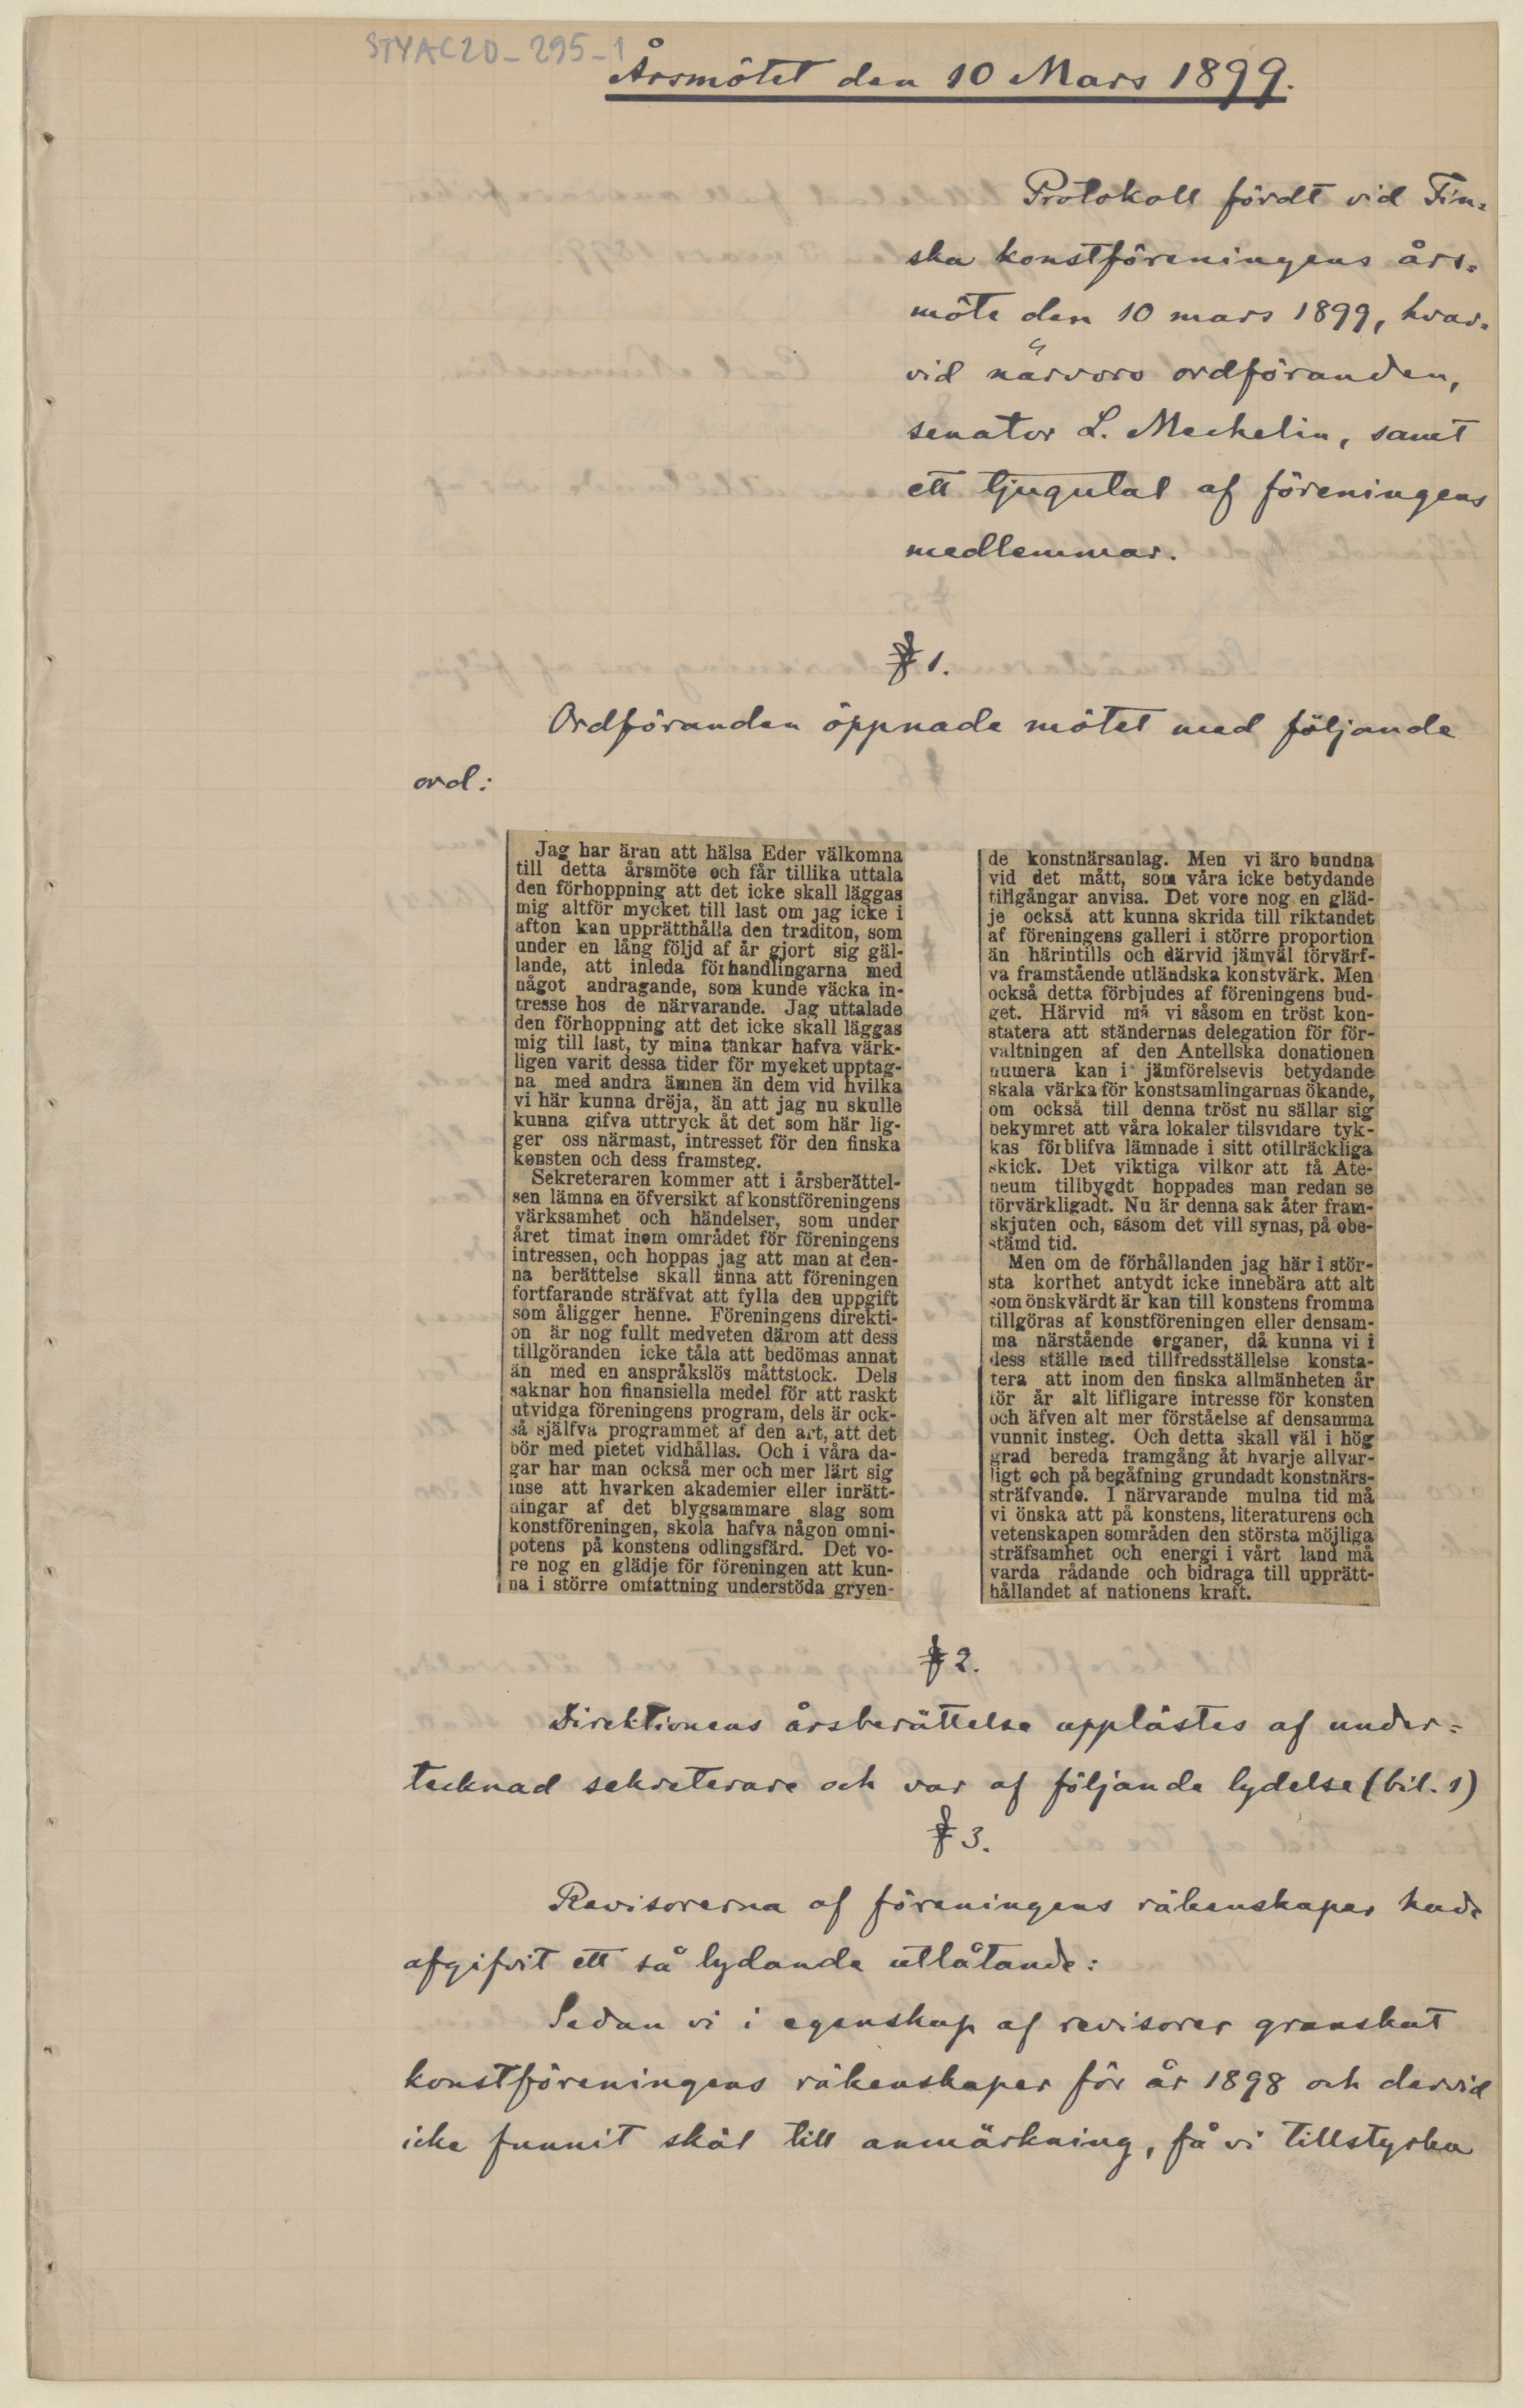 STYAC20-295-1
Årsmötet den 10 Mars 1899.
Protokoll fördt vid Fin=
ska konstföreningens års=
möte den 10 mars 1899, hvar=
vid närvoro ordföranden,
senator L. Mechelin, samt
ett tjugutal af föreningens
medlemmar.
§ 1.
Ordföranden öppnade mötet med följande
ord:
Jag har äran att hälsa Eder välkomna
till detta årsmöte och får tillika uttala
den förhoppning att det icke skall läggas
mig altför mycket till last om jag icke i
afton kan upprätthålla den traditon, som
under en lång följd af år gjort sig gäl-
lande, att inleda förhandlingarna med
något andragande, som kunde väcka in-
tresse hos de närvarande. Jag uttalade
den förhoppning att det icke skall läggas
mig till last, ty mina tankar hafva värk-
ligen varit dessa tider för mycket upptag-
na med andra ämnen än dem vid hvilka
vi här kunna dröja, än att jag nu skulle
kunna gifva uttryck åt det som här lig-
ger oss närmast, intresset för den finska
konsten och dess framsteg.
Sekreteraren kommer att i årsberättel-
sen lämna en öfversikt af konstföreningens
värksamhet och händelser, som under
året timat inom området för föreningens
intressen, och hoppas jag att man af den-
na berättelse skall finna att föreningen
fortfarande sträfvat att fylla den uppgift
som åligger henne. Föreningens direkti-
on är nog fullt medveten därom att dess
tillgöranden icke tåla att bedömas annat
än med en anspråkslös måttstock. Dels
saknar hon finansiella medel för att raskt
utvidga föreningens program, dels är ock-
så själfva programmet af den art, att det
bör med pietet vidhållas. Och i våra da-
gar har man också mer och mer lärt sig
inse att hvarken akademier eller inrätt-
ningar af det blygsammare slag som
konstföreningen, skola hafva någon omni-
potens på konstens odlingsfärd. Det vo-
re nog en glädje för föreningen att kun-
na i större omfattning understöda gryen-
de konstnärsanlag. Men vi äro bundna
vid det mått, som våra icke betydande
tillgångar anvisa. Det vore nog en gläd-
je också att kunna skrida till riktandet
af föreningens galleri i större proportion
än härintills och därvid jämväl förvärf-
va framstående utländska konstvärk. Men
också detta förbjudes af föreningens bud-
get. Härvid må vi såsom en tröst kon-
statera att ständernas delegation för för-
valtningen af den Antellska donationen
numera kan i jämförelsevis betydande
skala värka för konstsamlingarnas ökande,
om också till denna tröst nu sällar sig
bekymret att våra lokaler tilsvidare tyk-
kas förblifva lämnade i sitt otillräckliga
skick. Det viktiga vilkor att få Ate-
neum tillbygdt hoppades man redan se
förvärkligadt. Nu är denna sak åter fram-
skjuten och, såsom det vill synas, på obe-
stämd tid.
Men om de förhållanden jag här i stör-
sta korthet antydt icke innebära att alt
som önskvärdt är kan till konstens fromma
tillgöras af konstföreningen eller densam-
ma närstående organer, då kunna vi i
dess ställe med tillfredsställelse konsta-
tera att inom den finska allmänheten år
för år alt lifligare intresse för konsten
och äfven alt mer förståelse af densamma
vunnit insteg. Och detta skall väl i hög
grad bereda framgång åt hvarje allvar-
ligt och på begåfning grundadt konstnärs-
sträfvande. I närvarande mulna tid må
vi önska att på konstens, literaturens och
vetenskapen sområden den största möjliga
sträfsamhet och energi i vårt land må
varda rådande och bidraga till upprätt-
hållandet af nationens kraft.
§ 2.
Direktionens årsberättelse upplästes af under=
tecknad sekreterare och var af följande lydelse (bil. 1)
§ 3.
Revisorerna af föreningens räkenskaper hade
afgifvit ett så lydande utlåtande:
Sedan vi i egenskap af revisorer granskat
konstföreningens räkenskaper för år 1898 och dervid
icke funnit skäl till anmärkning, få vi tillstyrka